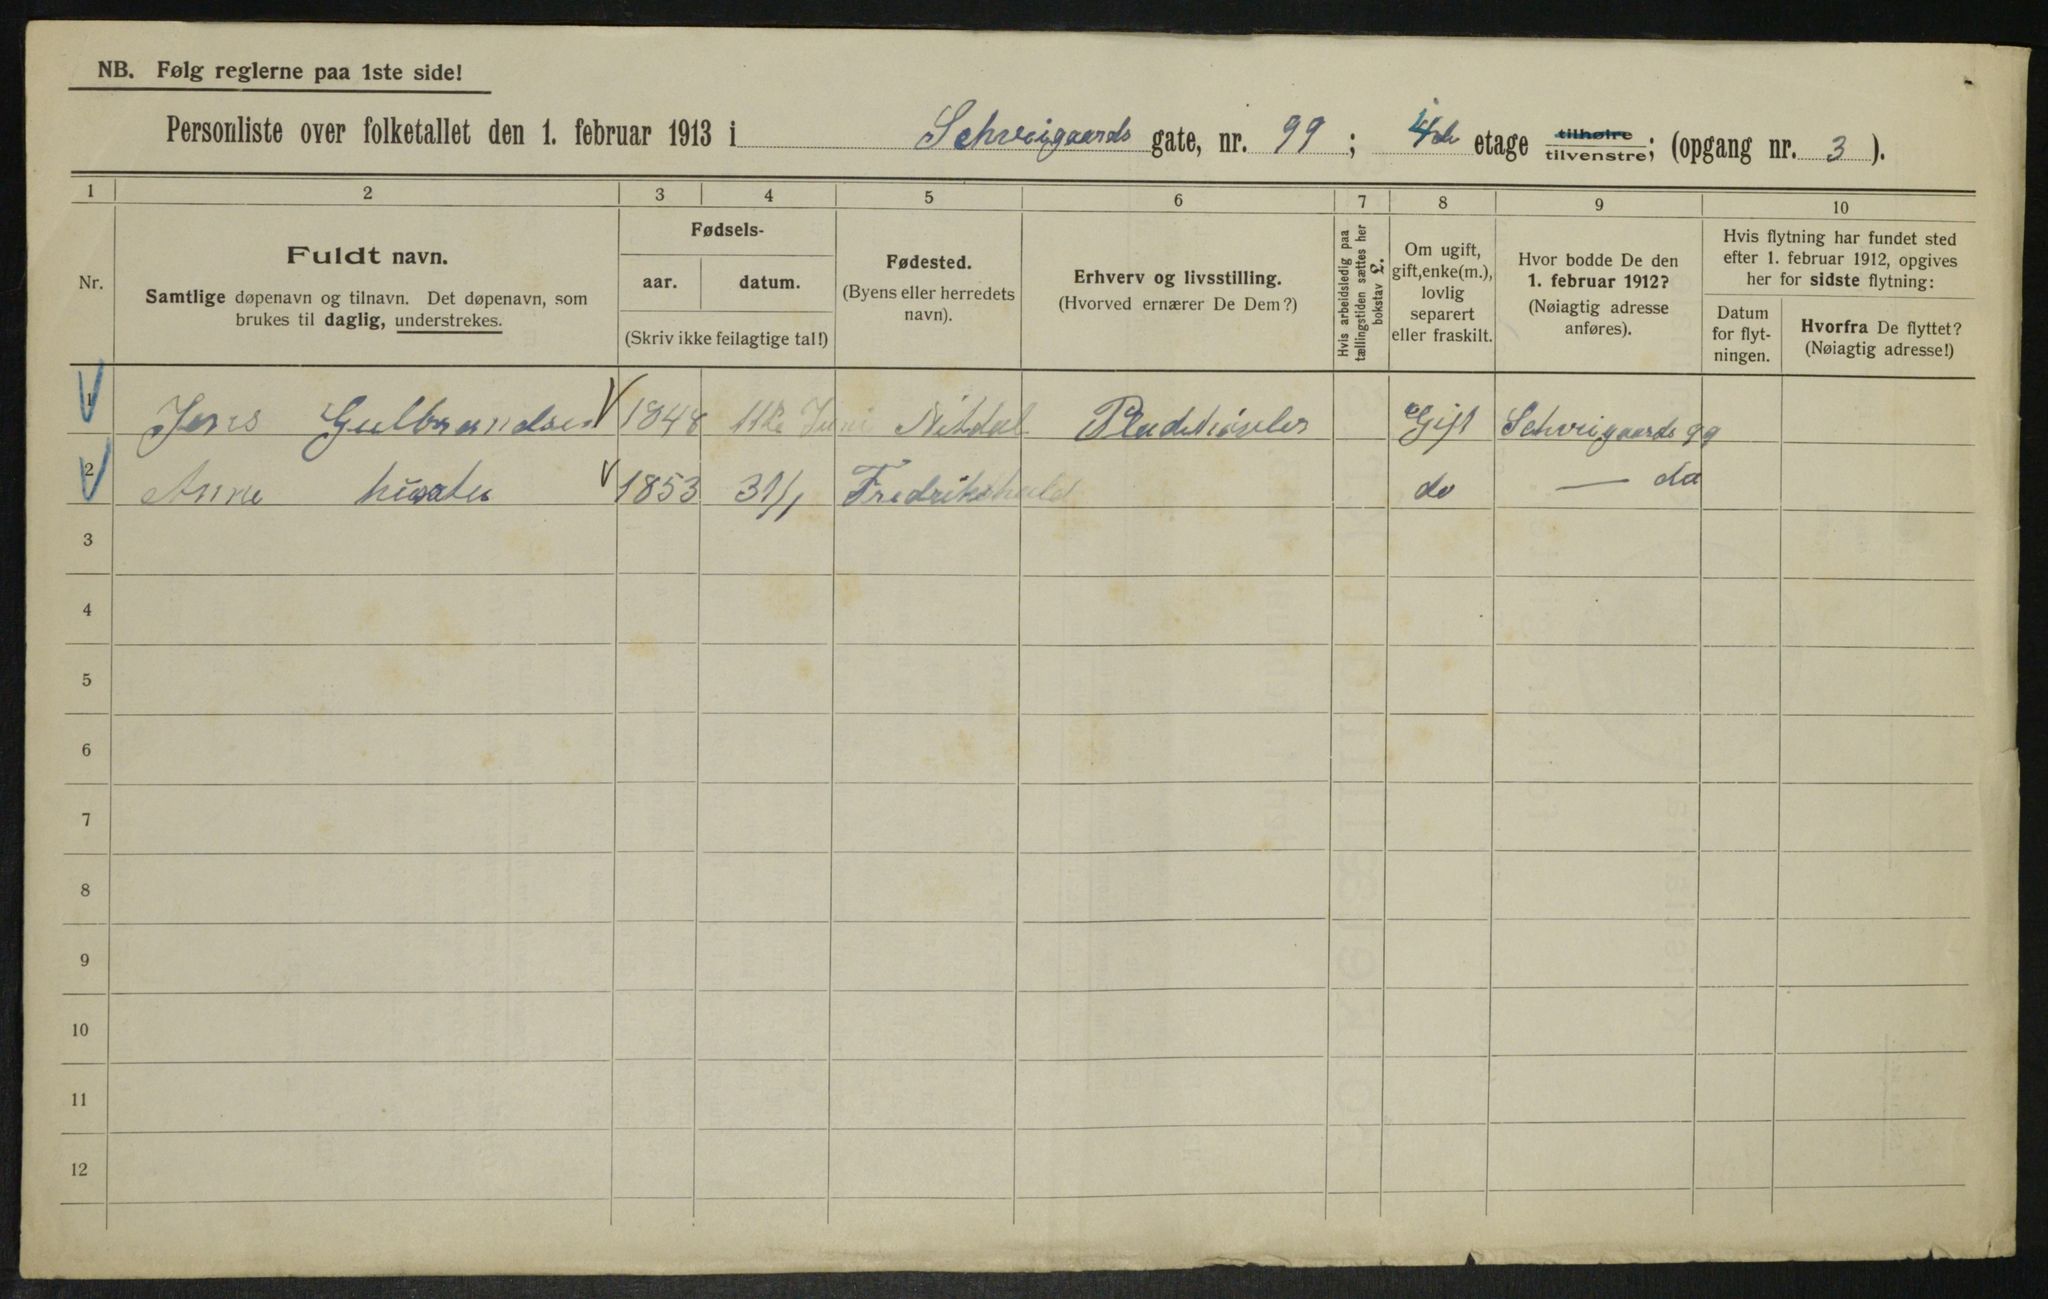 NB. Følg reglerne paa 1ste side!
Personliste over folketallet den 1. februar 1913 i Schveigaards gate, nr. 99; 4de etage tilhøire tilvenstre; (opgang nr. 3).
1 2 3 4 5 6 7 8 9 10
Nr.
Fuldt navn.
Samtlige døpenavn og tilnavn. Det døpenavn, som
brukes til daglig, understrekes.
Fødsels-
aar. datum.
(Skriv ikke feilagtige tal!)
Fødested.
(Byens eller herredets
navn).
Erhverv og livsstilling.
(Hvorved ernærer De Dem?)
Hvis arbeidsledig paa
tællingstiden sættes her
bokstav L.
Om ugift,
gift, enke(m.),
lovlig
separert
eller fraskilt.
Hvor bodde De den
1. februar 1912?
(Nøiagtig adresse
anføres).
Hvis flytning har fundet sted
efter 1. februar 1912, opgives
her for sidste flytning:
Datum
for flyt-
ningen.
Hvorfra De flyttet?
(Nøiagtig adresse!)
1 Jens Gulbrandsen 1848 11te Juni Nitdal Gift Schveigaards 99
2 Anne 1853 31/1 Fredrikshald do — do
3
4
5
6
7
8
9
10
11
12